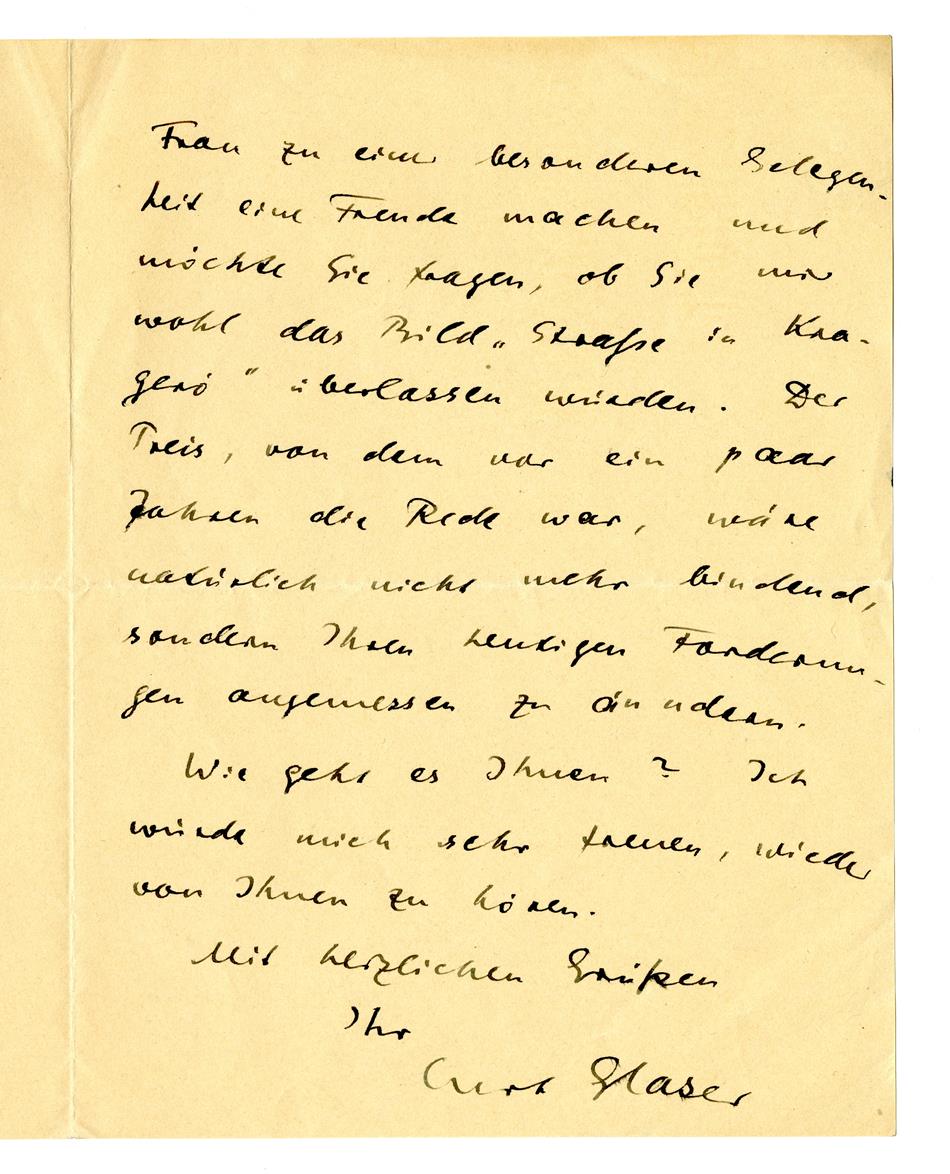 Frau zu einer besonderen Gelegen-
heit eine Freude machen und
möchte Sie fragen, ob Sie mir
wohl das Bild „Straße in Kra-
gerö" überlassen würden. Der
Preis, von dem vor ein paar
Jahren die Rede war, wäre
natürlich nicht mehr bindend,
sondern Ihren heutigen Forderun-
gen angemessen zu änndern.
Wie geht es Ihnen? Ich
würde mich sehr freuen, wieder
von Ihnen zu hören.
Mit herzlichen Grüßen
Ihr
Curt Glaser